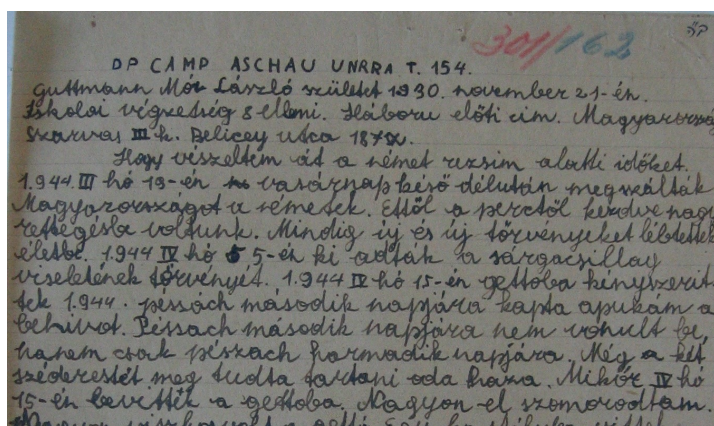 301/162
DP CAMP ASCHAU UNRRA T. 154.
Guttmann Mór László született 1930. november 21-én.
Iskolai végzetség 8 ellemi. Háboru előti cim. Magyarorszá
Szarvas III k. Belicey utca 187
Hogy vészeltem át a német rezsim alatti időket.
1.944. III hó 19-én vasárnap késő délután megszálták
Magyarországot a németek. Ettől a perctől kezdve nagy
rettegésbe voltunk. Mindig új és új törvényeket léptettek
életbe. 1944 IV hó 5-én ki adták a sárgacsillag
viseletének törvényét. 1944 IV hó 15-én gettoba kényszerit
tek 1.944. pessách második napjára kapta apukám a
behivot. Péssach második napjára nem vonult be,
hanem csak pészach harmadik napjára. Még a két
széderestét meg tudta tartani oda haza. Mikor IV hó
15-én bevittek a gettoba. Nagyon el szomorodtam.